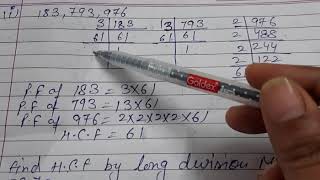 i) 183, 793, 976
3 | 183   3 | 793   2 | 976
61 | 61   61 | 61   2 | 488
1   1   2 | 244
2 | 122
6
P.F of 183 = 3×61
P.F of 793 = 13×61
P.F of 976 = 2×2×2×2×61
H.C.F = 61
Find H.C.F by long division M
Goldex